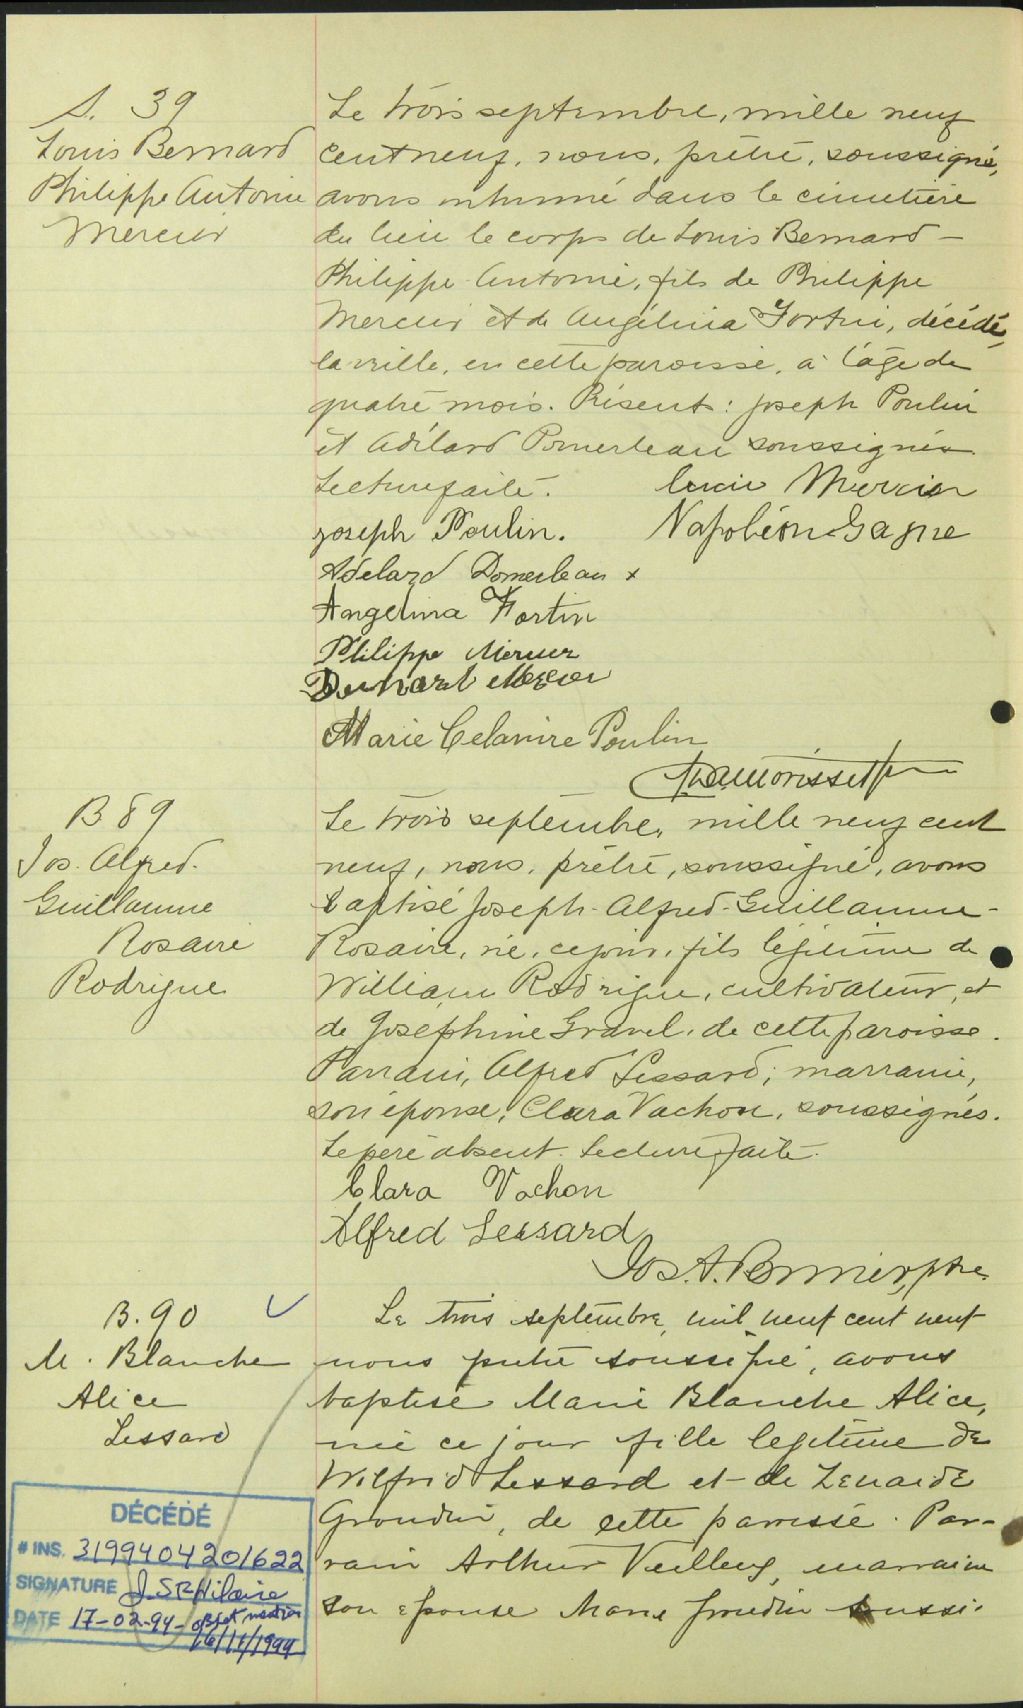 S. 39
Louis Bernard
Philippe Antoine
Mercier
Le trois septembre, mille neuf
cent neuf, nous, prêtre, soussigné,
avons inhumé dans le cimetière
du lieu le corps de Louis Bernard-
Philippe-Antoine, fils de Philippe
Mercier et de Angélina Fortin, décédé,
la veille, en cette paroisse, à l'âge de
quatre mois. Présents: Joseph Poulin
et Adélard Pomerleau soussignés.
Lecture faite. Lucie Mercier
Joseph Poulin. Napoléon Gagne
Adelard Pomerleau x
Angelina Fortin
Philippe Mercier
Bernard Mercier
Marie Celanire Poulin
Morisset ptre
B 89
Jos. Alfred.
Guillaume
Rosaire
Rodrigue
Le trois septembre, mille neuf cent
neuf, nous, prêtre, soussigné, avons
baptisé Joseph-Alfred-Guillaume-
Rosaire, né, ce jour, fils légitime de
William Rodrigue, cultivateur, et
de Joséphine Gravel, de cette paroisse.
Parrain, Alfred Lessard; marraine,
son épouse, Clara Vachon, soussignés.
Le père absent. Lecture faite.
Clara Vachon
Alfred Lessard
Jos. A. Bernier, ptre.
B. 90
M. Blanche
Alice
Lessard
Le trois septembre, mil neuf cent neuf
nous prêtre soussigné, avons
baptisé Marie Blanche Alice,
née ce jour fille legitime de
Wilfrid Lessard et de Zenaide
Grondin, de cette paroisse. Par-
rain Arthur Veilleux, marraine
son épouse Marie Grondin soussi-
DÉCÉDÉ
# INS. 3199404201622
SIGNATURE J. St-Hilaire
DATE 17-02-94 -
16/11/1994